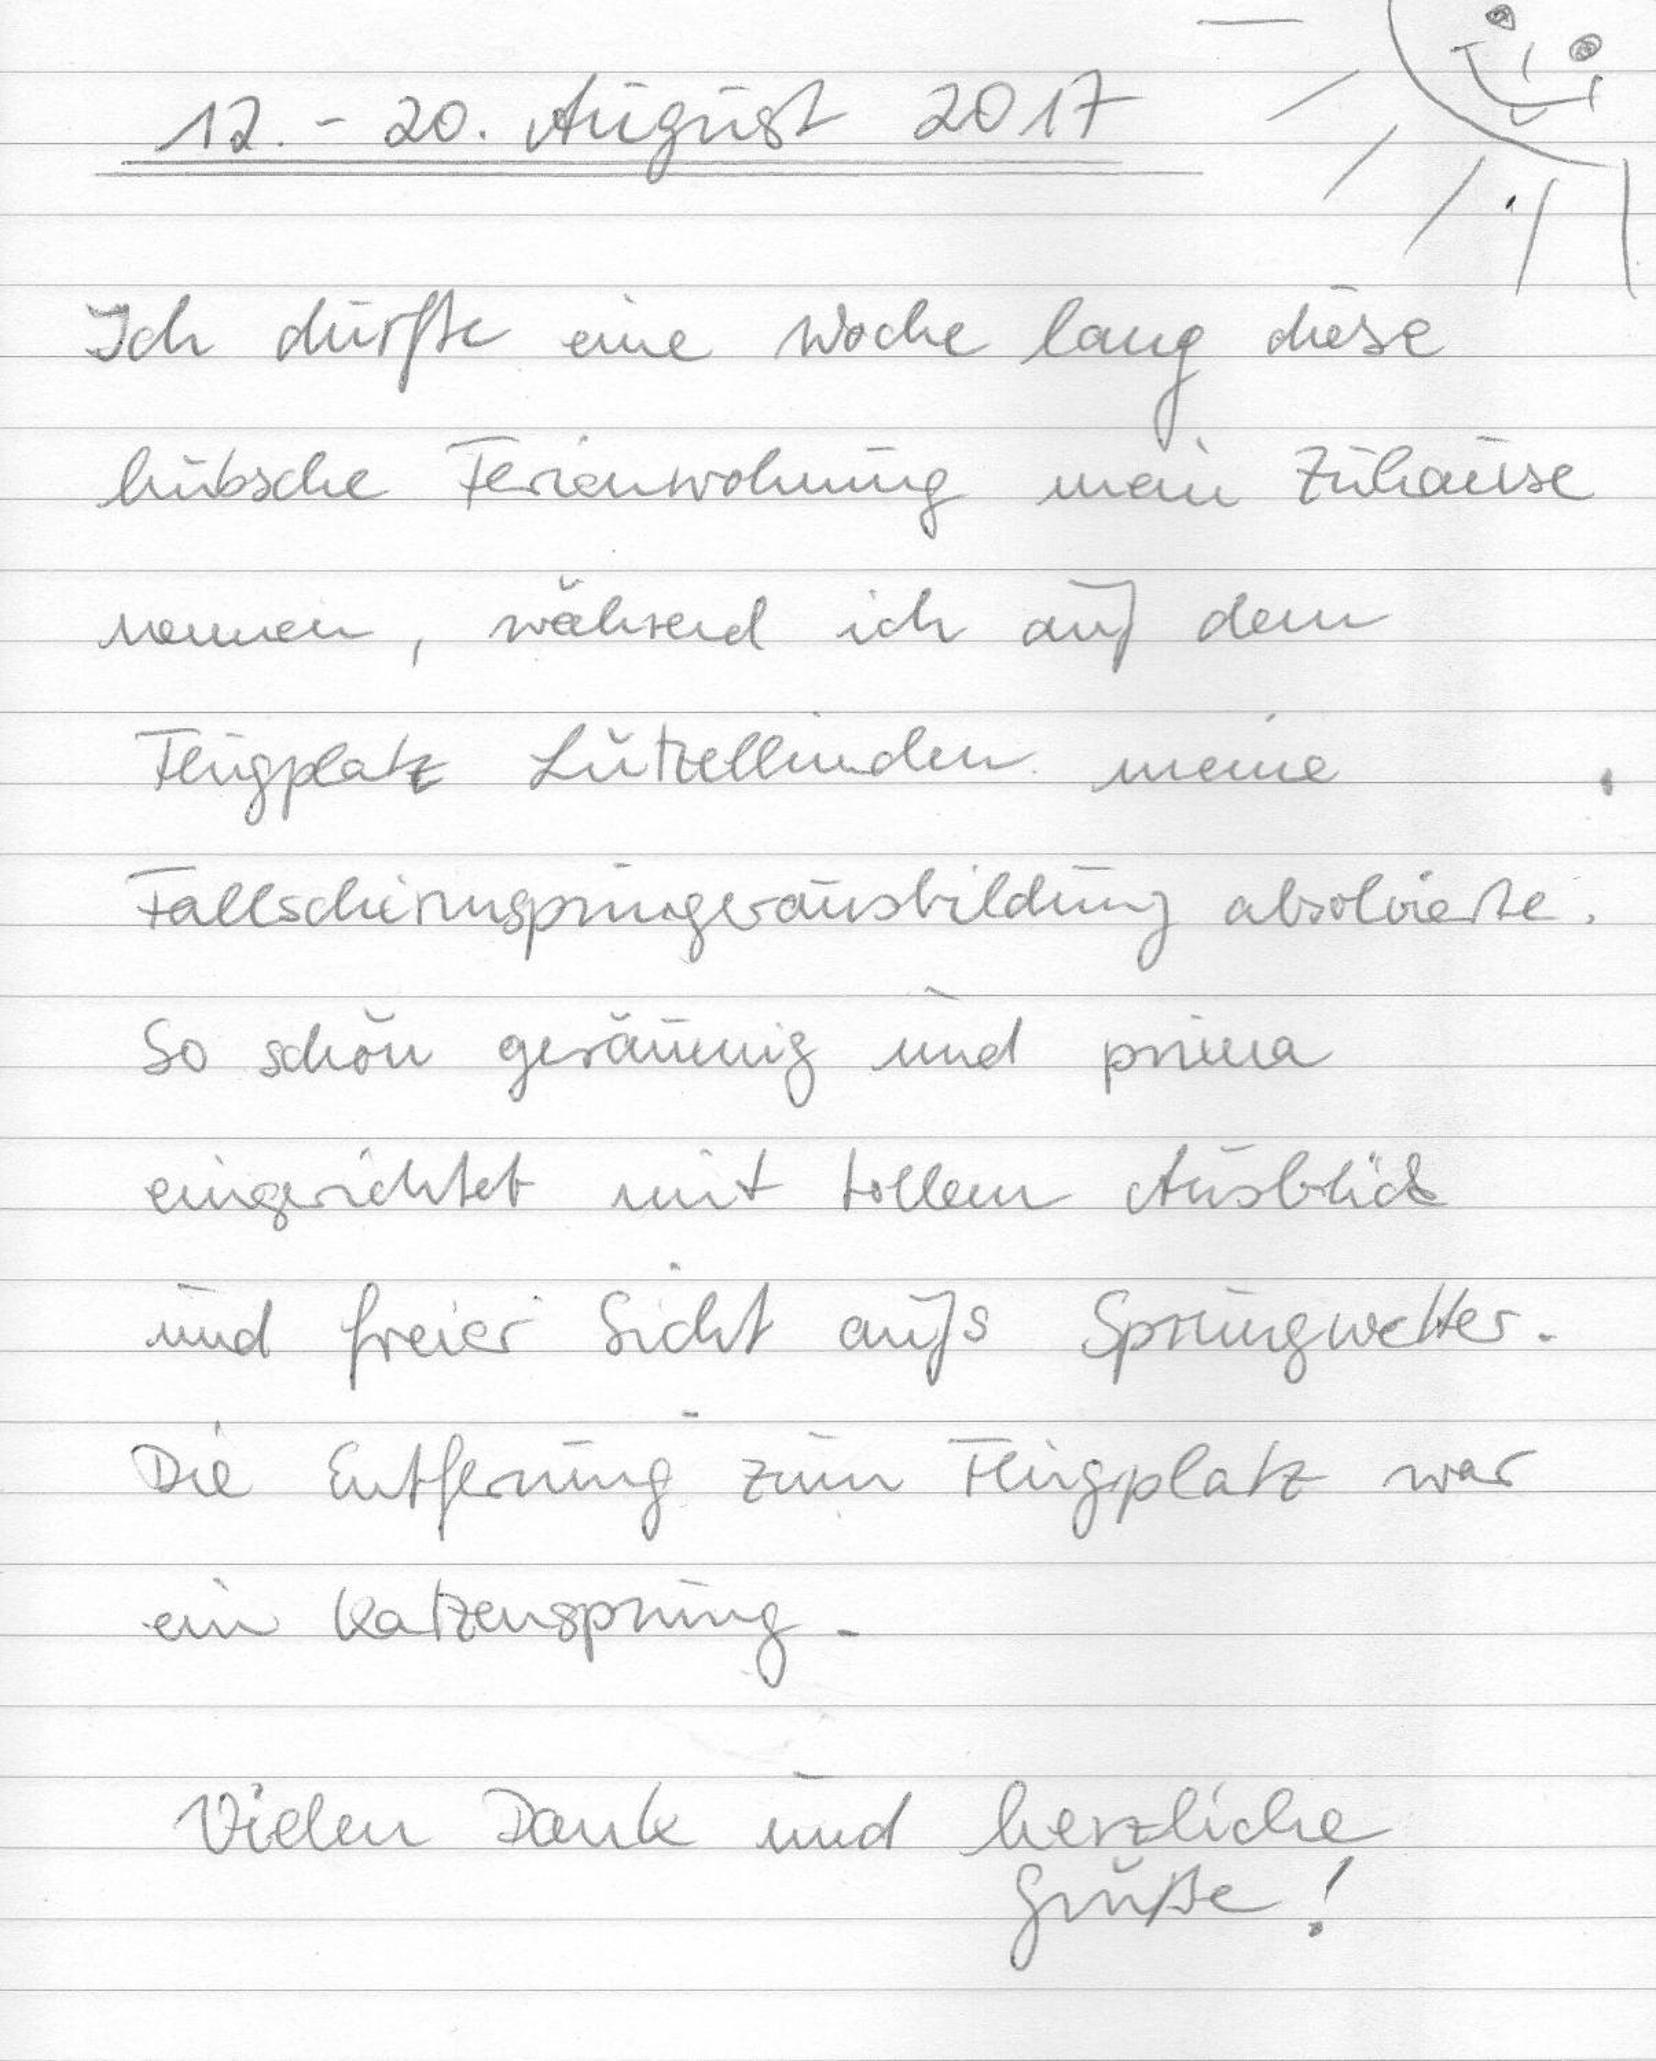 12. - 20. August 2017
Ich durfte eine Woche lang diese
hübsche Ferienwohnung mein Zuhause
nennen, während ich auf dem
Flugplatz Lützellinden meine
Fallschirmspringerausbildung absolvierte.
So schön geräumig und prima
eingerichtet mit tollem Ausblick
und freier Sicht aufs Sprungwetter.
Die Entfernung zum Flugplatz war
ein Katzensprung.
Vielen Dank und herzliche
Grüße!